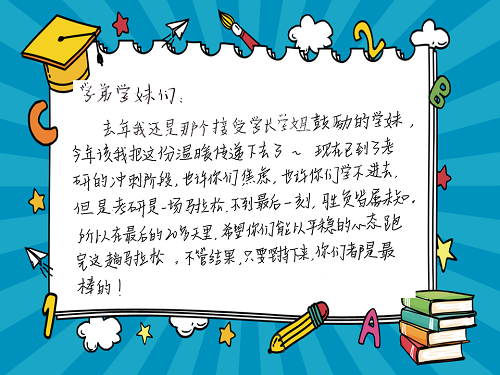 学弟学妹们:
去年我还是那个接受学长学姐鼓励的学妹,
今年该我把这份温暖传递下去了~ 现在已到了考
研的冲刺阶段,也许你们焦虑,也许你们学不进去,
但是考研是一场马拉松,不到最后一刻,胜负皆属未知。
所以在最后的20多天里,希望你们能以平稳的心态跑
完这趟马拉松。不管结果,只要坚持下来,你们都是最
棒的!
C
2
B
1
A